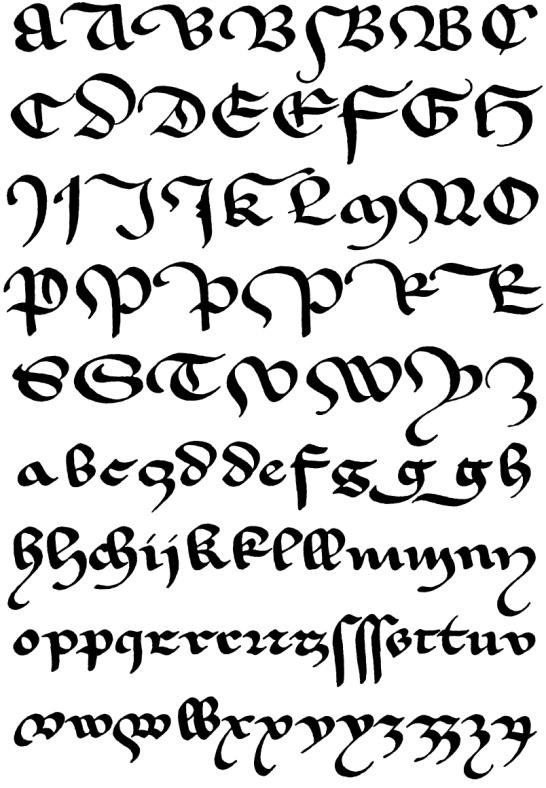 A A B B B B C
C D D E E F G H
I I J J K L M N O
P P P P R R
S S T V W Y Z
a b c d d e f g g g h
h h ch i j k k l ll m m n n
o p p q r r r r r z ſ ſſ s t t u v
v w w w x x y y z zz z